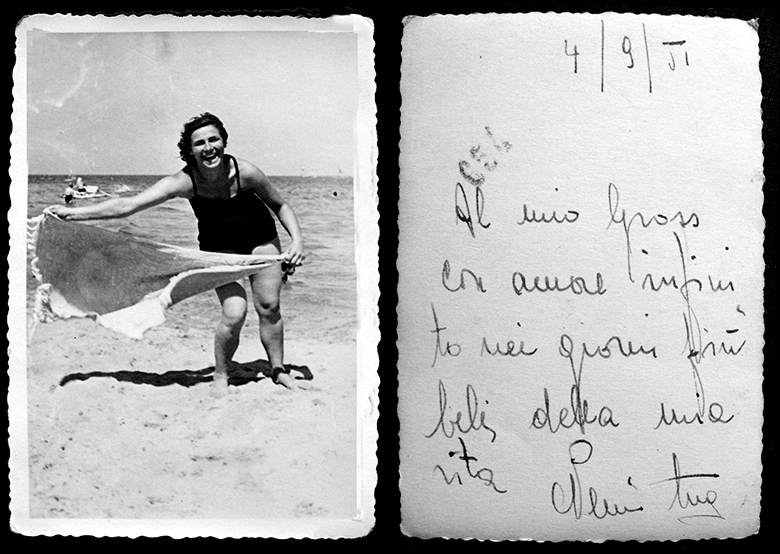 4/9/51
C54
Al mio Gross
con amore infini
to nei giorni più
belli della mia
vita
tua